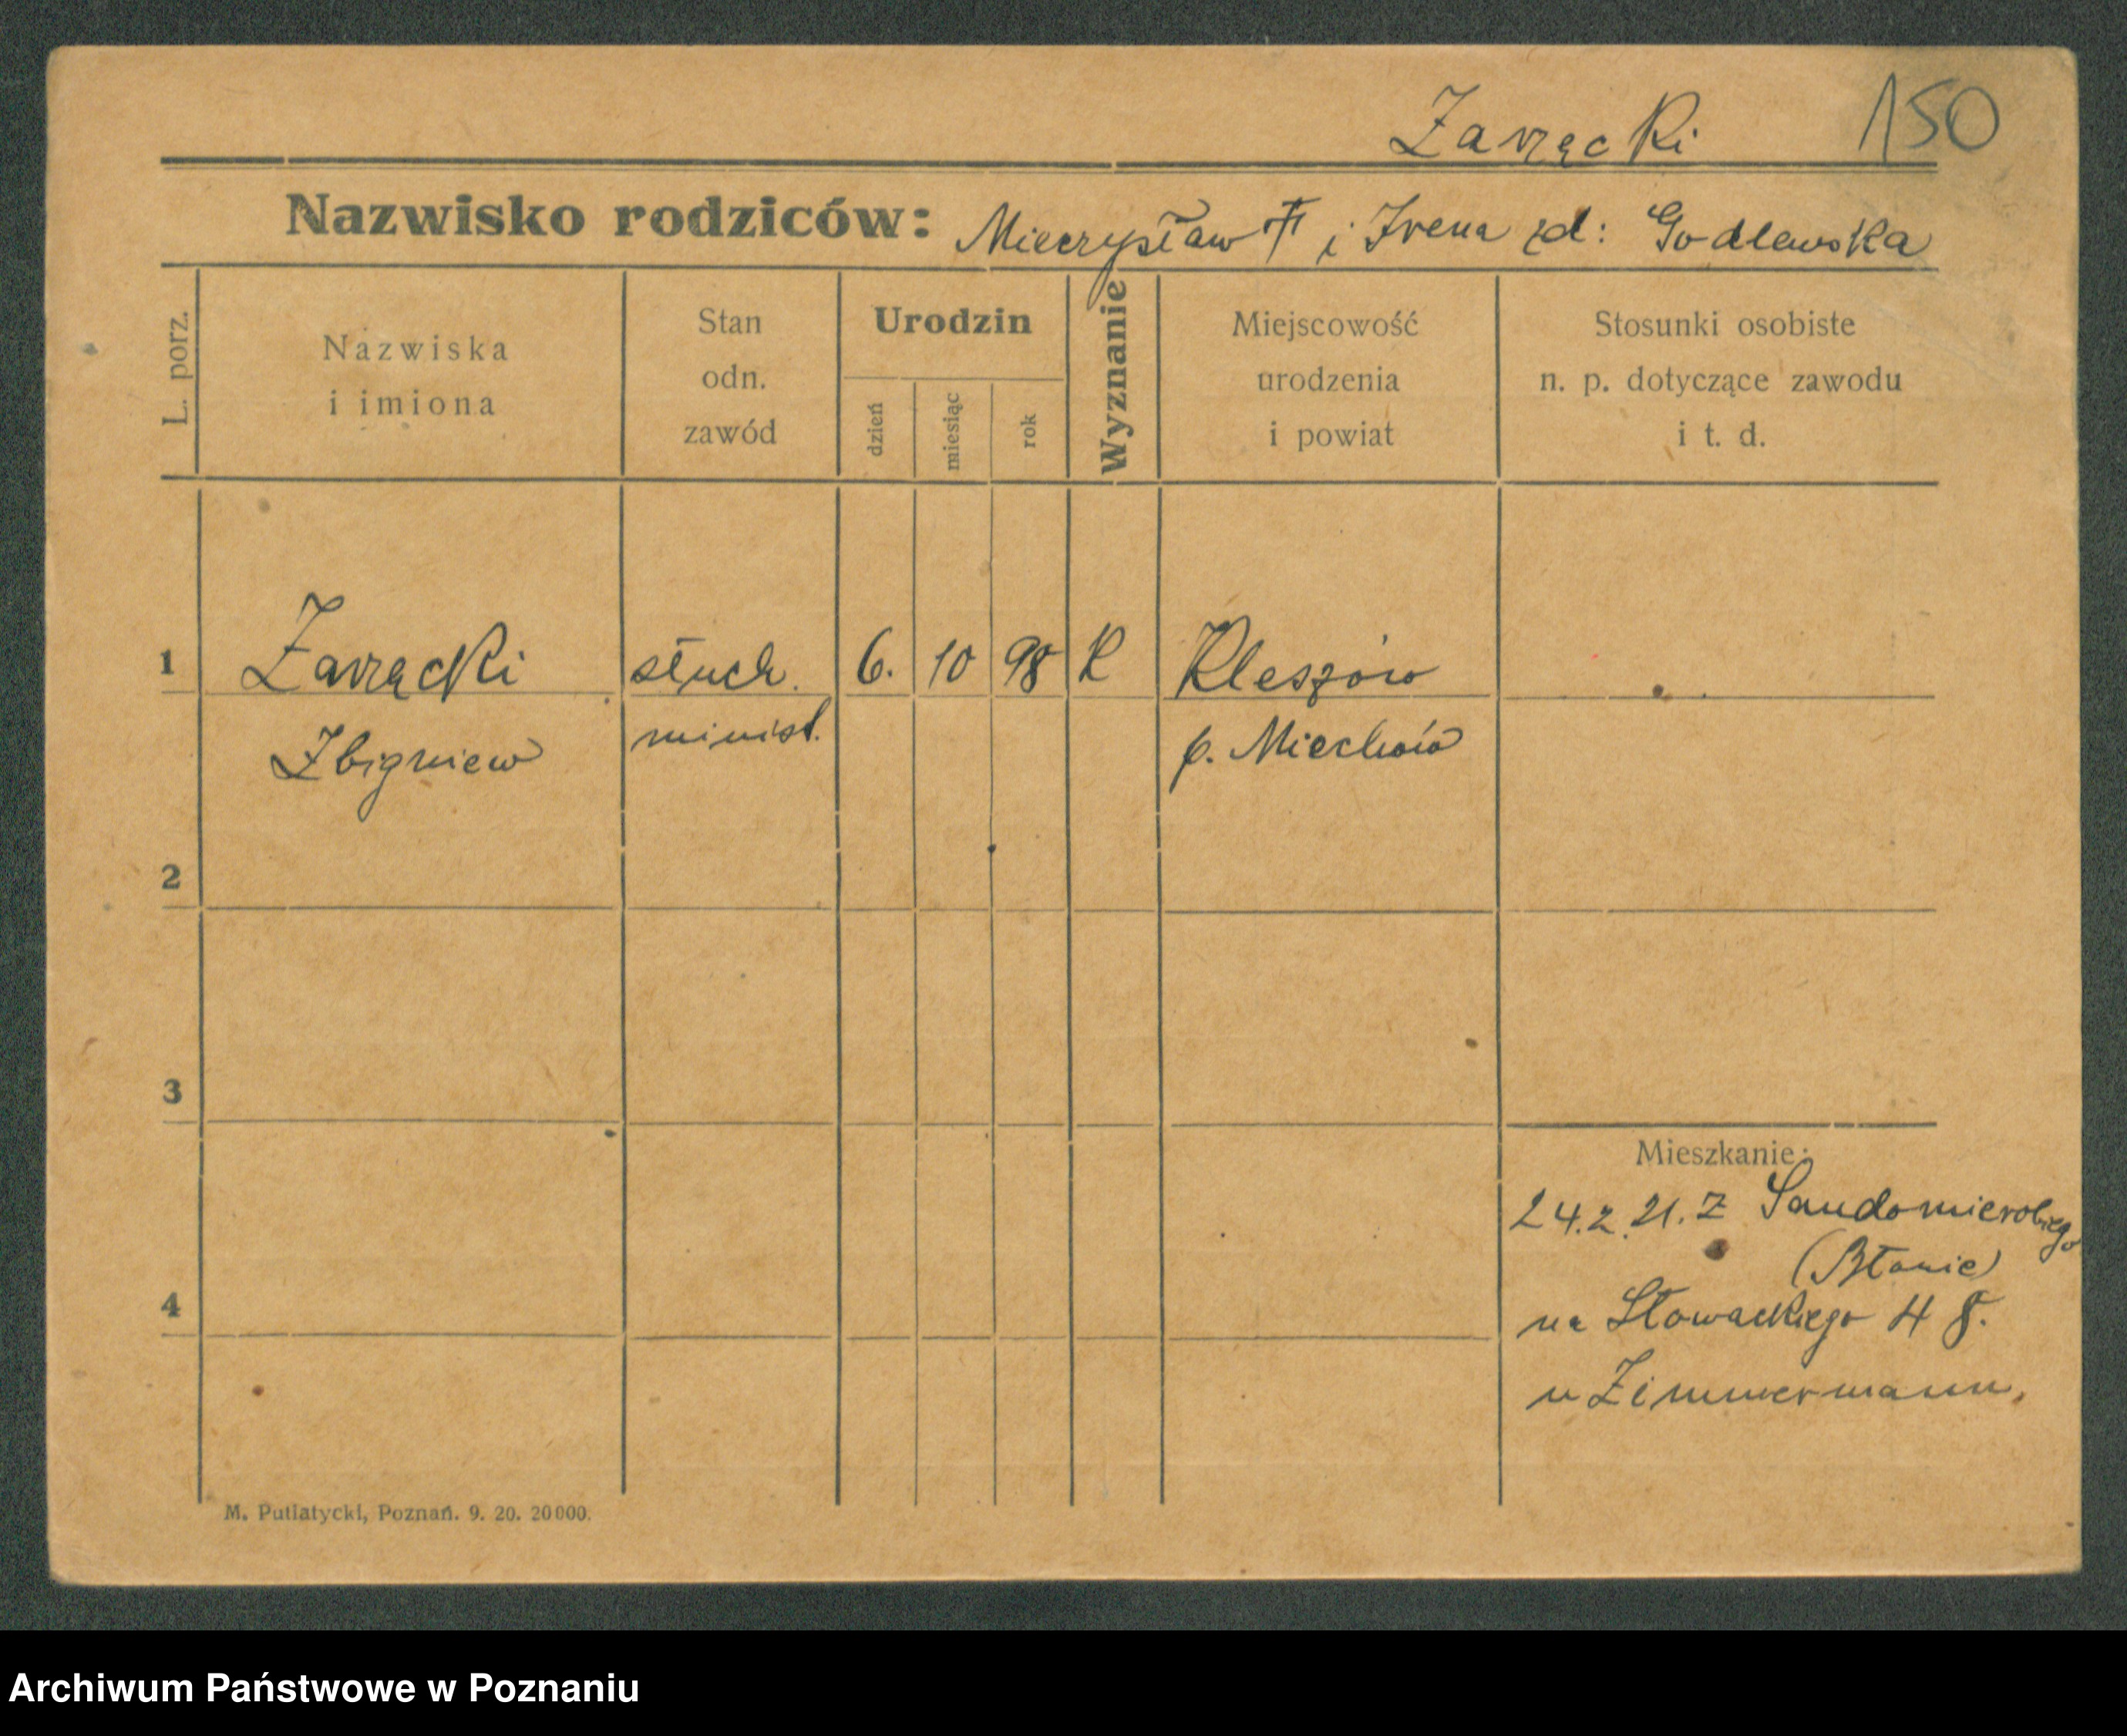 Zarzącki 150
Nazwisko rodziców: Mieczysław † i Irena zd: Godlewska
L. porz.
Nazwiska i imiona
Stan odn. zawód
Urodzin
dzień miesiąc rok
Wyznanie
Miejscowość urodzenia i powiat
Stosunki osobiste n. p. dotyczące zawodu i t. d.
1 Zarzącki słuch. 6. 10 98 K Kleszów
Zbigniew minist. p. Miechów
2
3
4
Mieszkanie:
24.2.21. z
(Błonie)
na Słowackiego 48.
u Zimmermann.
M. Putiatycki, Poznań. 9. 20. 20000.
Archiwum Państwowe w Poznaniu